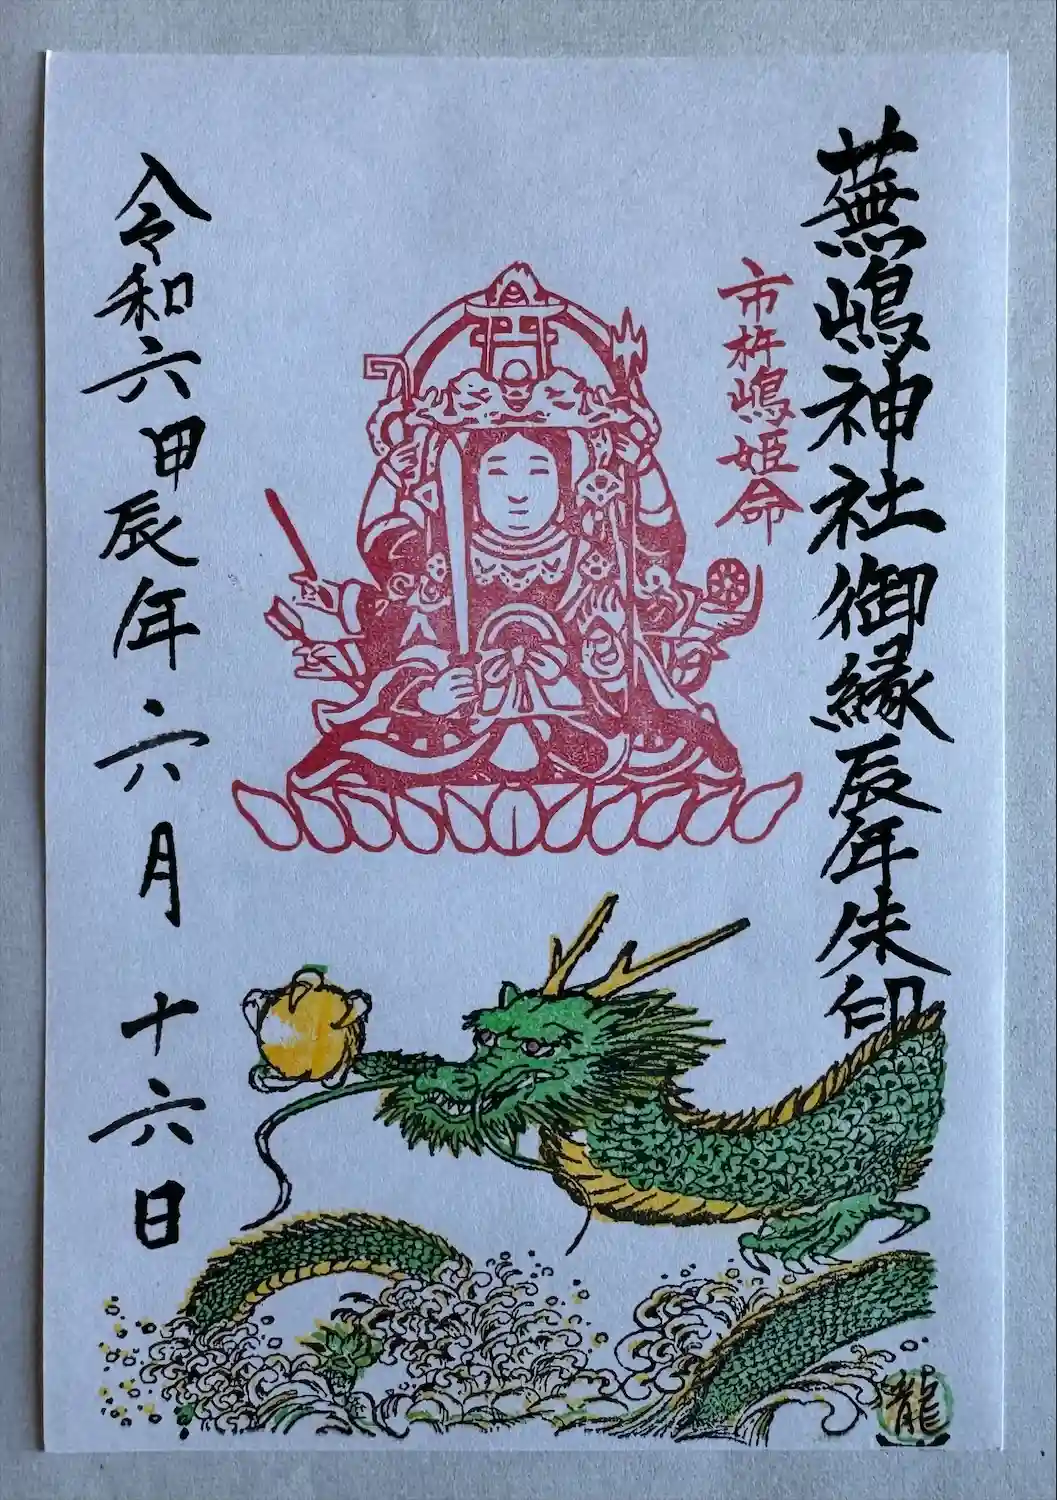 蕪嶋神社御縁辰年朱印
市杵嶋姫命
令和六甲辰年六月十六日
龍